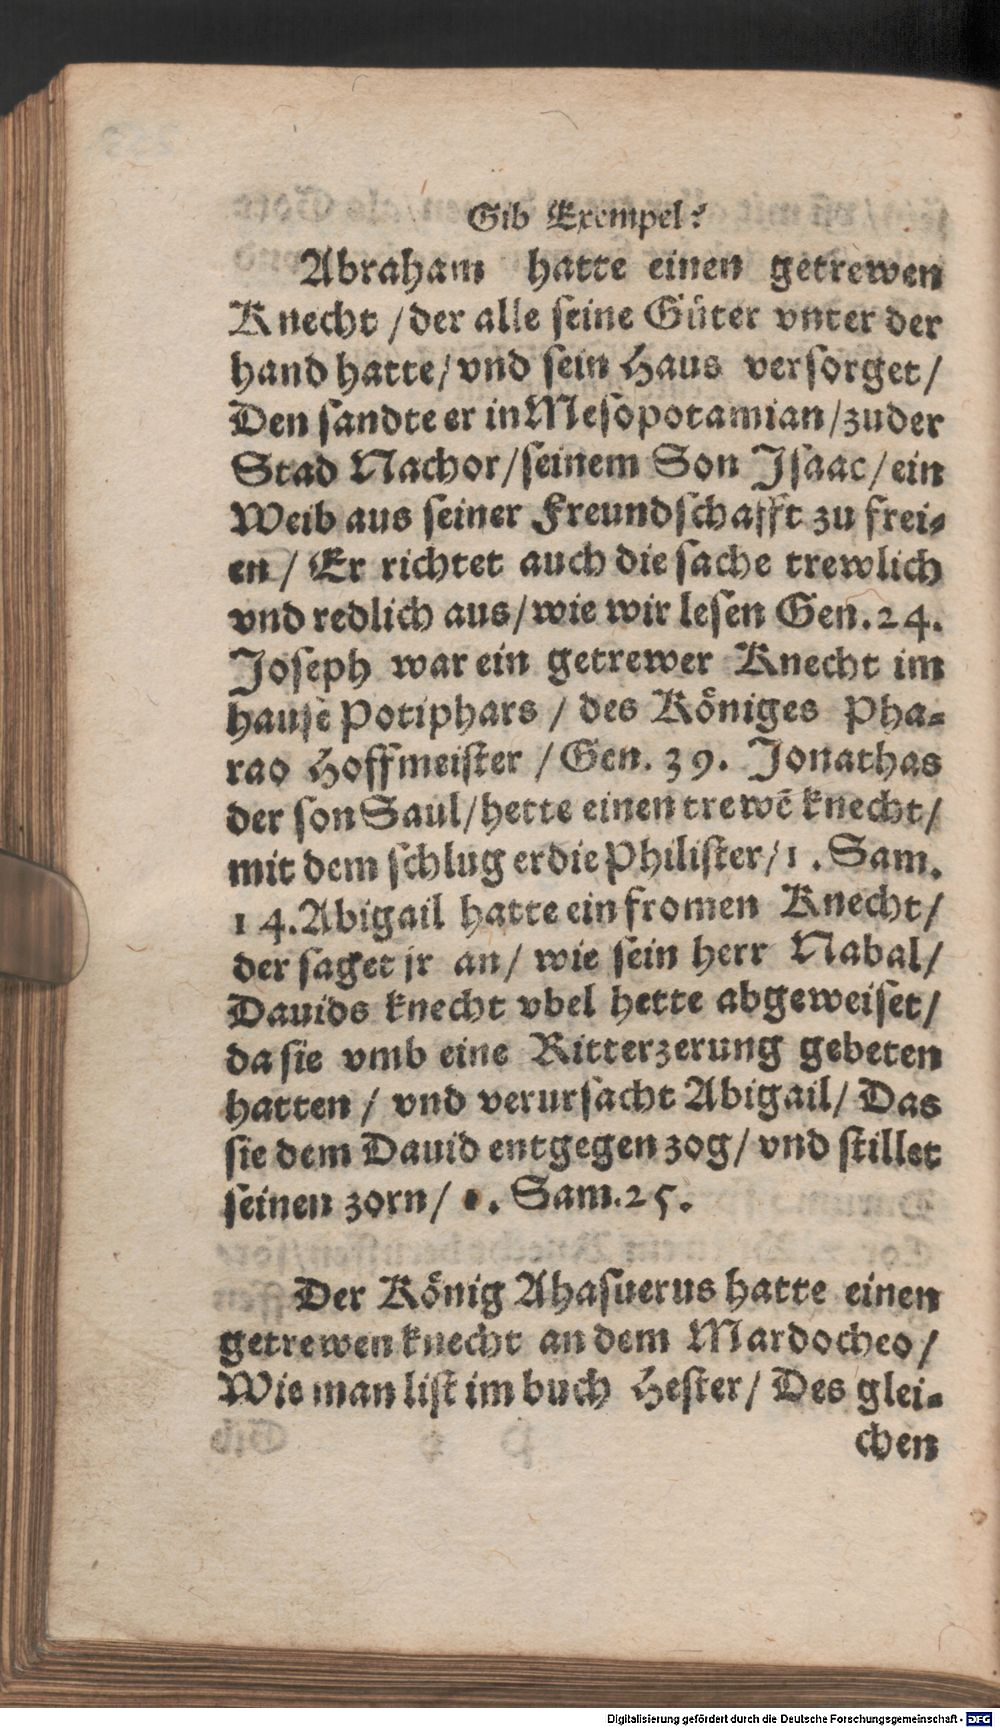 Gib Exempel?
Abraham hatte einen getrewen
Knecht / der alle seine Güter vnter der
hand hatte / vnd sein Haus versorget /
Den sandte er in Mesopotamian / zu der
Stad Nachor / seinem Son Isaac / ein
Weib aus seiner Freundschafft zu frei-
en / Er richtet auch die sache trewlich
vnd redlich aus / wie wir lesen Gen. 24.
Joseph war ein getrewer Knecht im
hause Potiphars / des Königes Pha-
rao Hoffmeister / Gen. 39. Jonathas
der son Saul / hette einen trewē knecht /
mit dem schlug er die Philister / 1. Sam.
14. Abigail hatte ein fromen Knecht /
der saget jr an / wie sein herr Nabal /
Dauids knecht vbel hette abgeweiset /
da sie vmb eine Ritterzerung gebeten
hatten / vnd verursacht Abigail / Das
sie dem Dauid entgegen zog / vnd stillet
seinen zorn / 1. Sam. 25.
Der König Ahasuerus hatte einen
getrewen knecht an dem Mardocheo /
Wie man list im buch Hester / Des glei-
chen
Digitalisierung gefördert durch die Deutsche Forschungsgemeinschaft - DFG